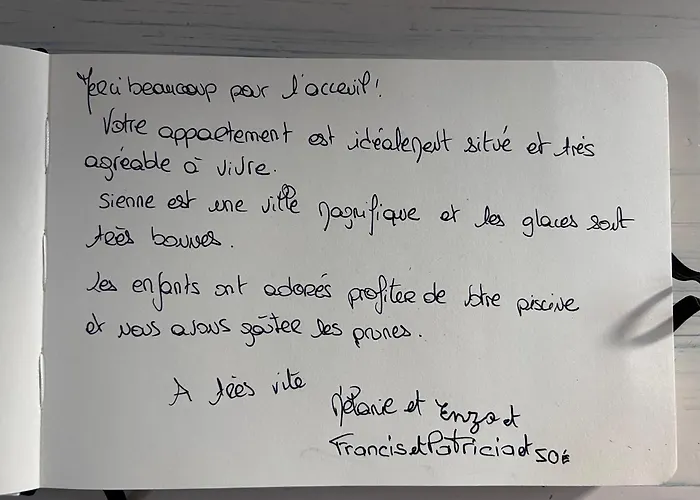 Merci beaucoup pour l'acceuil!
Votre appartement est idéalement situé et très
agréable à vivre.
Sienne est une ville magnifique et les glaces sont
très bonnes.
Les enfants ont adorés profiter de votre piscine
et nous avons goûter les prunes.
A très vite
Mélanie et Enzo et
Francis et Patricia et